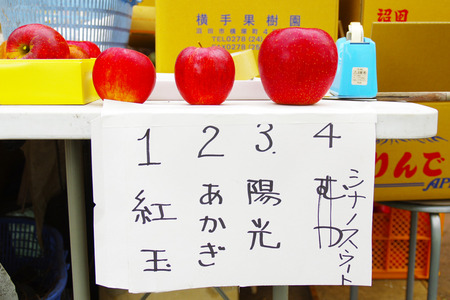 横手果樹園
沼田
TEL 0278(24)
FAX 0278(22)
りんご
AP
1 紅玉
2 あかぎ
3. 陽光
4 むつ
シナノスウィート